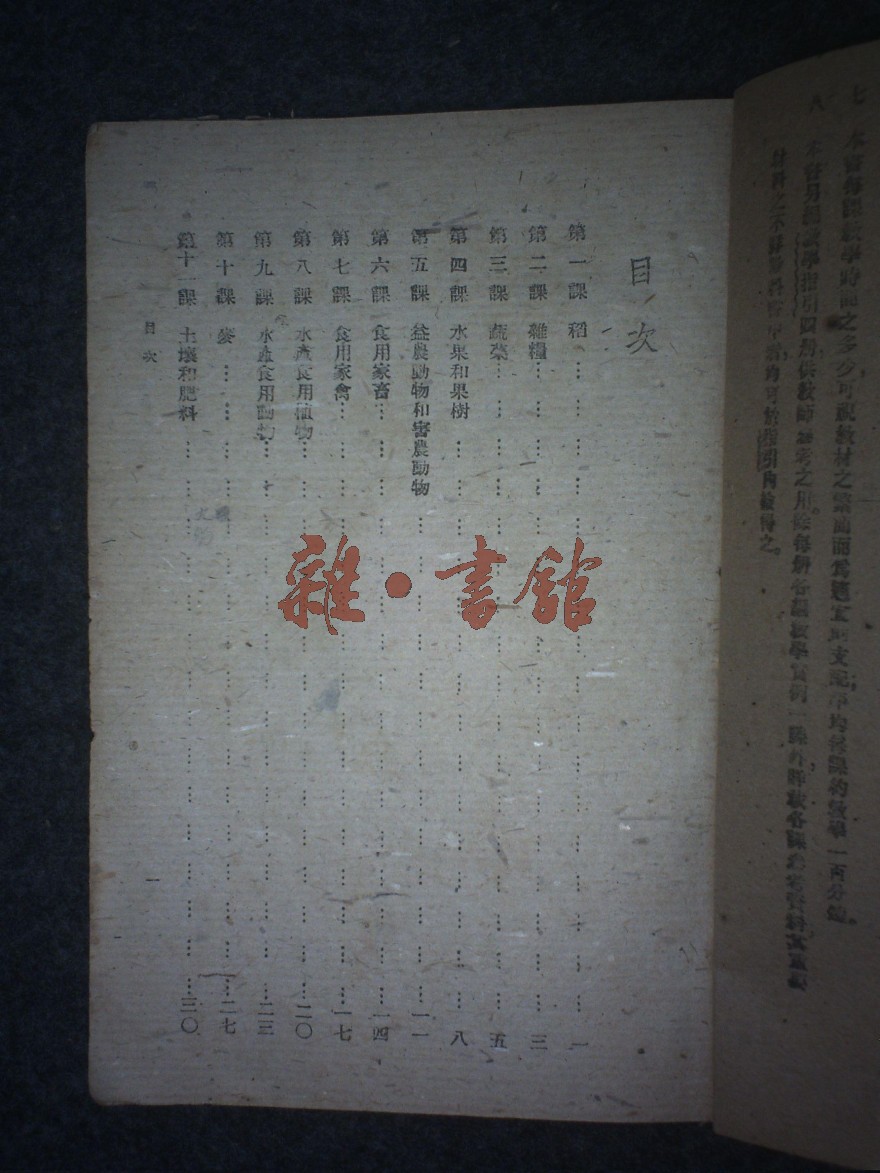 七　本書每課教學時間之多少可視教材之繁簡而爲適宜的支配平均每課約教學一百分鐘。
八　本書另編教學指引四册供教師參考之用除每册各課教學實例一課外
材料之不
目次
第一課　稻……一
第二課　雜糧……三
第三課　蔬菜……五
第四課　水果和果樹……八
第五課　益農動物和害農動物……一一
第六課　食用家畜……一四
第七課　食用家禽……一七
第八課　水產食用植物……二〇
第九課　水產食用動物……二三
第十課　麥……二七
第十一課　土壤和肥料……三〇
目次
一
雜·書館